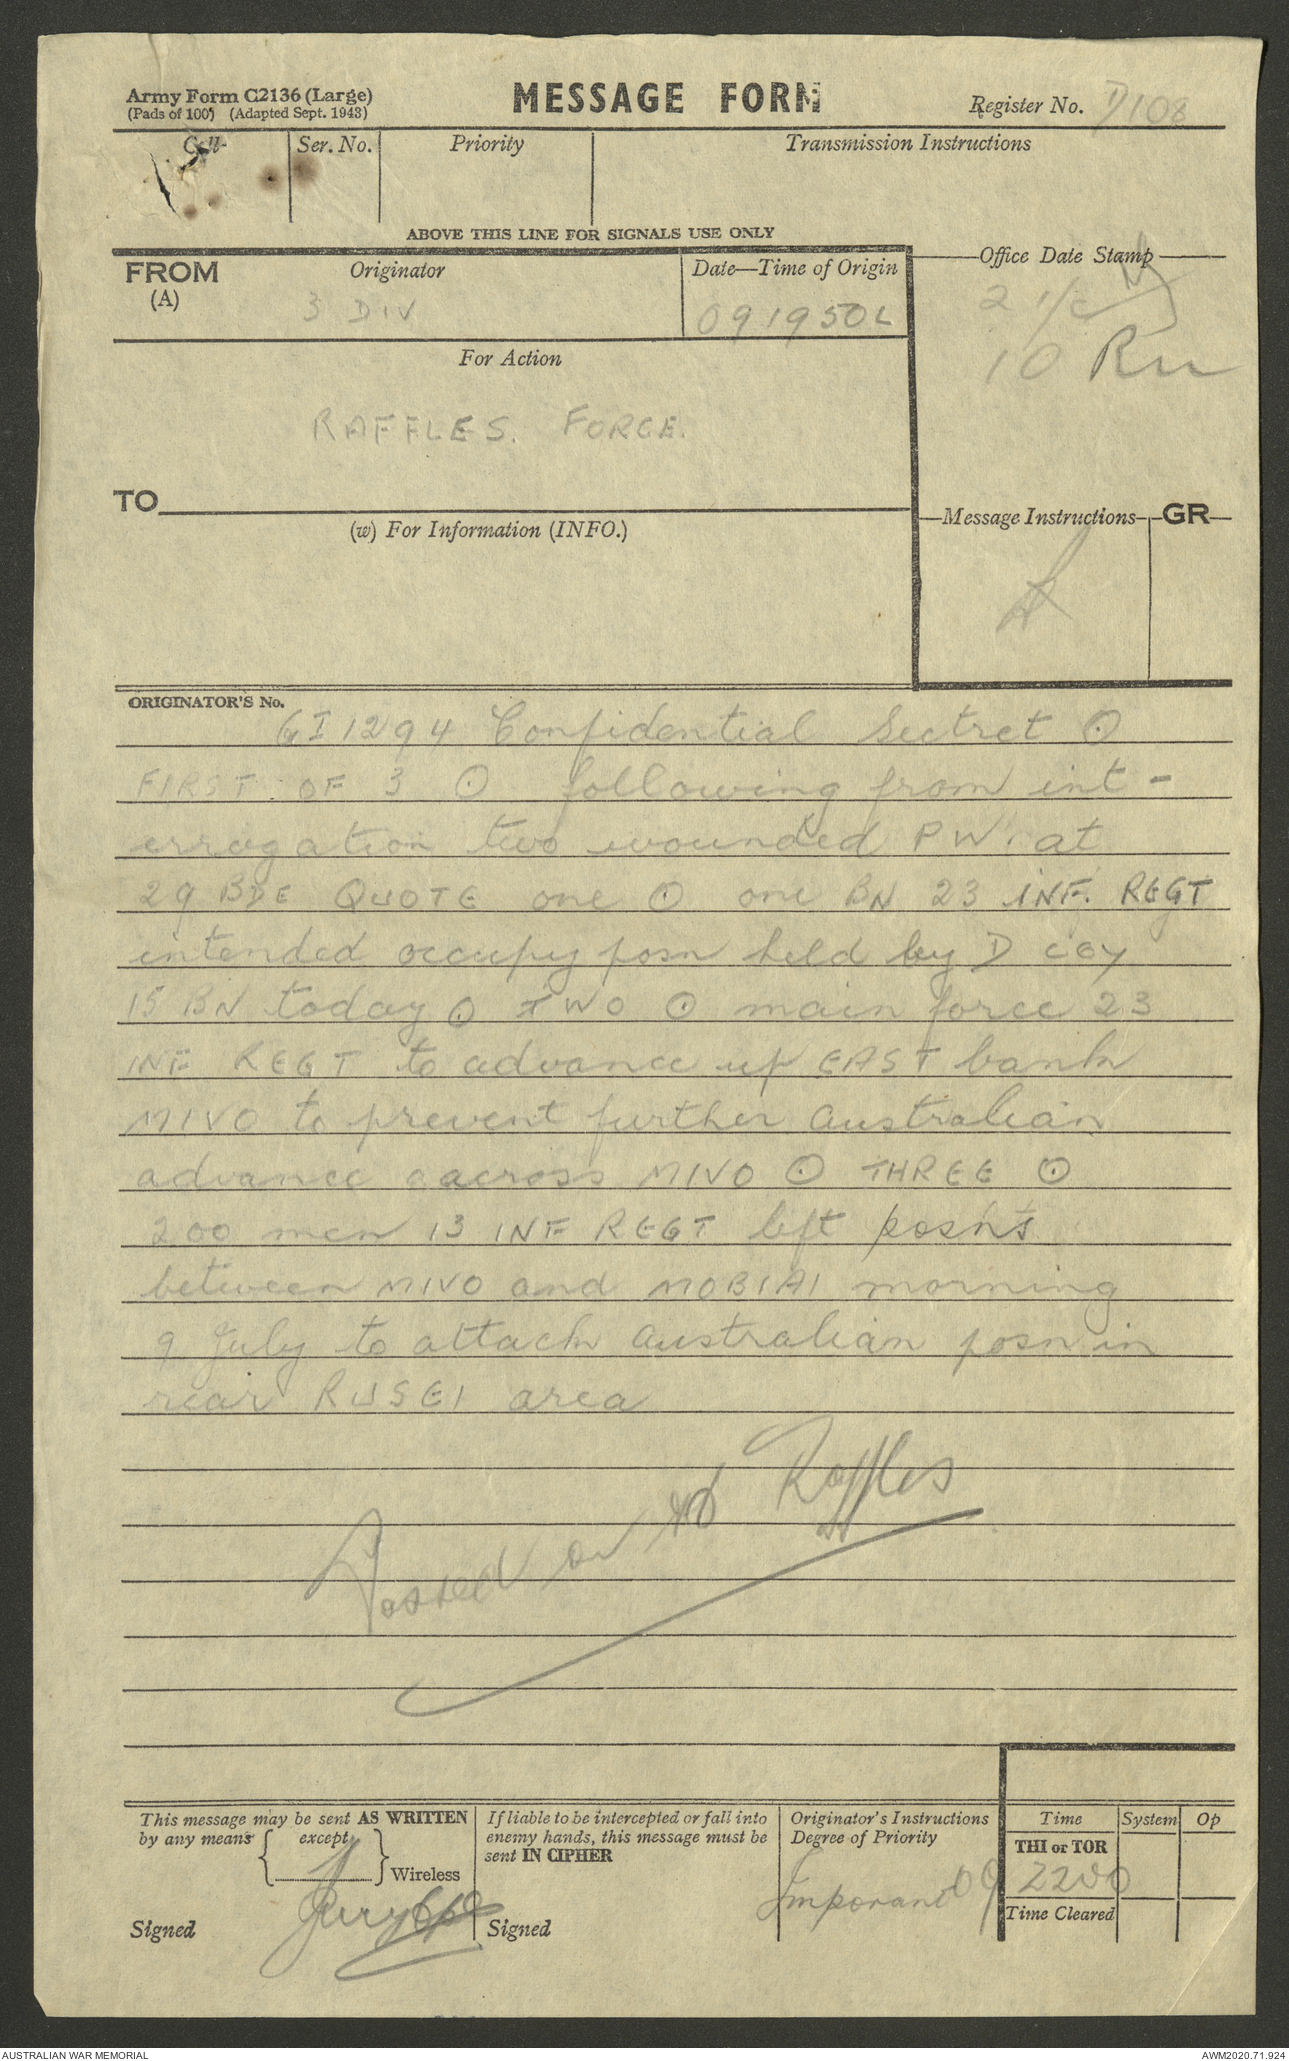 Army Form C2136 (Large)
(Pads of 100) (Adapted Sept. 1943)
MESSAGE FORM
Register No. D108
Call
Ser. No.
Priority
Transmission Instructions
ABOVE THIS LINE FOR SIGNALS USE ONLY
FROM
(A)
Originator
3 DIV
Date—Time of Origin
091950L
Office Date Stamp
2 i/c
IO
For Action
RAFFLES. FORCE.
TO
(w) For Information (INFO.)
Message Instructions
GR
ORIGINATOR'S No.
GI1294 Confidential Sectret ⊙
FIRST OF 3 ⊙ following from int-
errogation two wounded PW. at
29 BDE QUOTE one ⊙ one BN 23 INF. REGT
intended occupy posn held by D coy
15 BN today ⊙ TWO ⊙ main force 23
INF REGT to advance up EAST bank
MIVO to prevent further australian
advance aacross MIVO ⊙ THREE ⊙
200 men 13 INF REGT left posns
between MIVO and MOBIAI morning
9 July to attack australian posn in
rear RUSEI area
Passed on to Raffles
This message may be sent AS WRITTEN
by any means except
Wireless
Signed
If liable to be intercepted or fall into
enemy hands, this message must be
sent IN CIPHER
Signed
Originator's Instructions
Degree of Priority
Imporant
Time
System
Op
THI or TOR
09 2200
Time Cleared
AUSTRALIAN WAR MEMORIAL
AWM2020.71.924